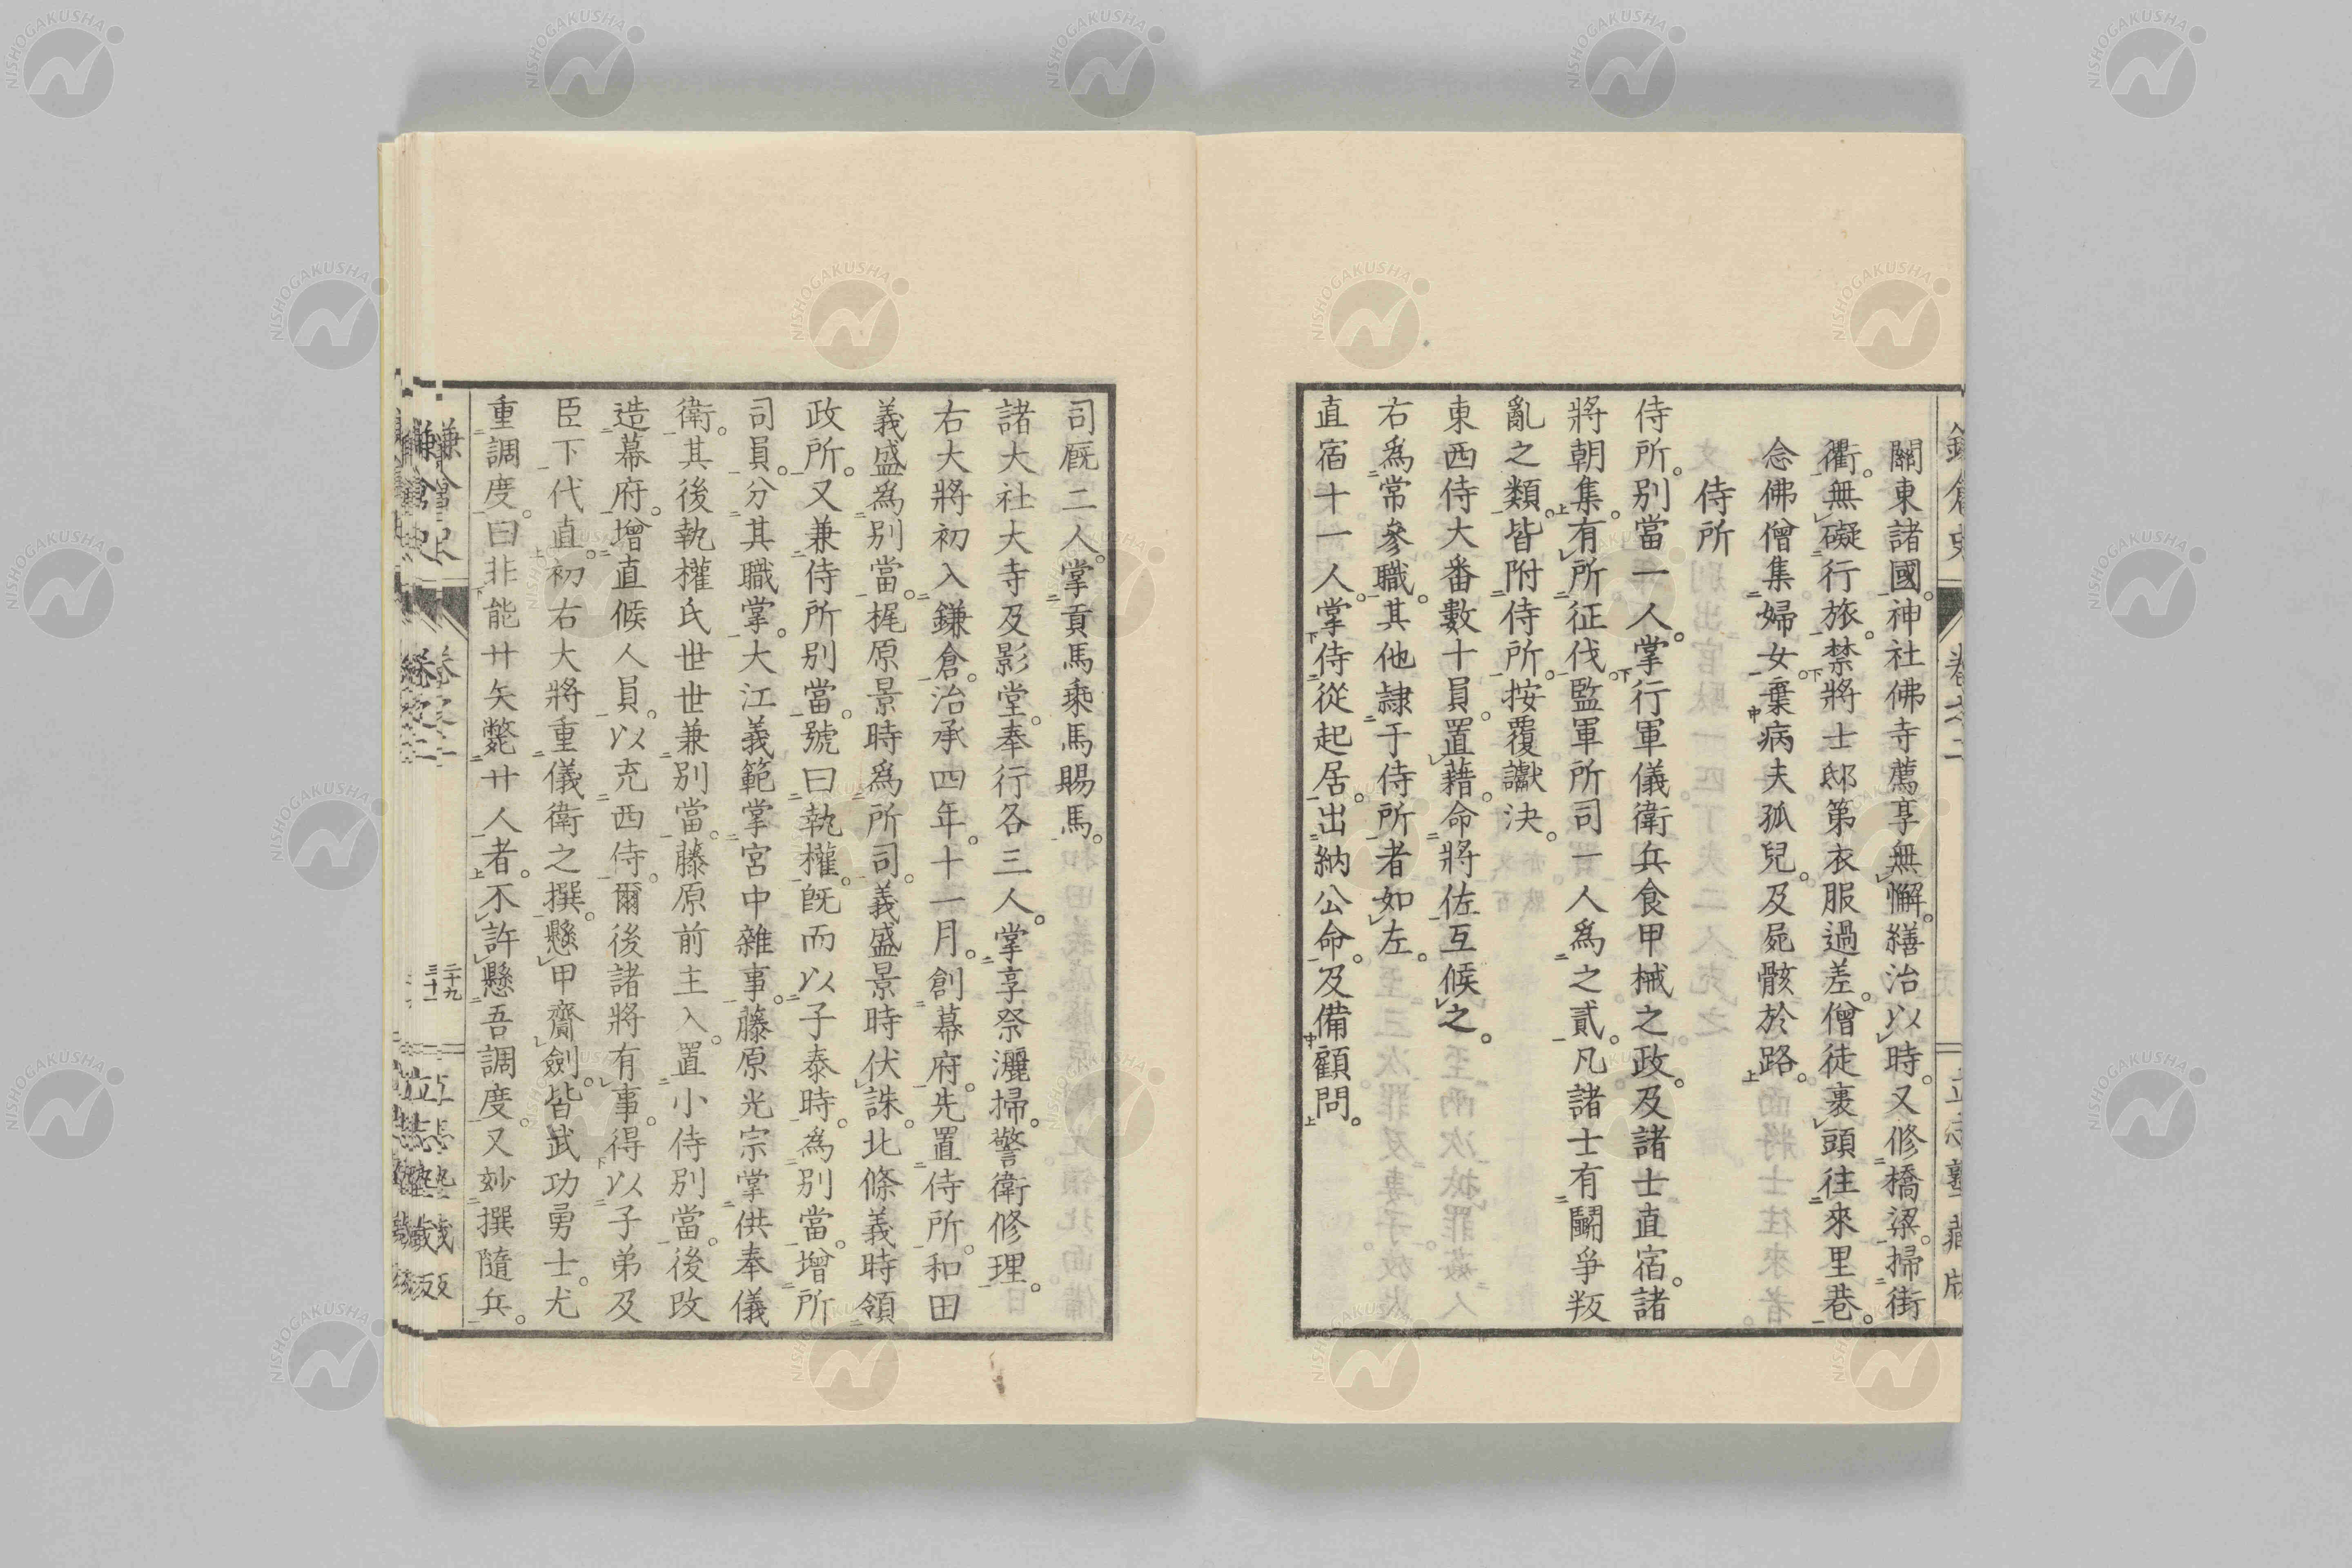 關東諸國。神社佛寺薦享無懈。繕治以時。又修橋梁。掃街
衢。無礙行旅。禁將士邸第衣服過差。僧徒裹頭往來里巷。
念佛僧集婦女。棄病夫孤兒。及屍骸於路。
侍所
侍所。別當一人。掌行軍儀衛兵食甲械之政。及諸士直宿。諸
將朝集。有所征伐。監軍所司一人爲之貳。凡諸士有鬭爭叛
亂之類。皆附侍所。按覆讞決。
東西侍大番數十員。置藉。命將佐互候之。
右爲常參職。其他隷于侍所者如左。
直宿十一人。掌侍從起居。出納公命。及備顧問。
司厩二人。掌貢馬乘馬賜馬。
諸大社大寺及影堂。奉行各三人。掌享祭灑掃。警衛修理。
右大將初入鎌倉。治承四年。十一月。創幕府。先置侍所。和田
義盛爲別當。梶原景時爲所司。義盛景時伏誅。北條義時領
政所。又兼侍所別當。號曰執權。既而以子泰時。爲別當。增所
司員。分其職掌。大江義範掌宮中雜事。藤原光宗掌供奉儀
衛。其後執權氏世世兼別當。藤原前主入。置小侍別當。後改
造幕府。增直候人員。以充西侍。爾後諸將有事。得以子弟及
臣下代直。初右大將重儀衛之撰。懸甲齎劍。皆武功勇士。尤
重調度。曰非能廿矢斃廿人者。不許懸吾調度。又妙撰隨兵。